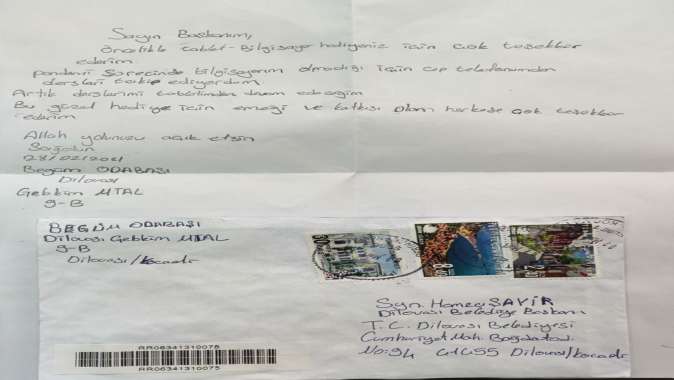 Sayın Başkanım,
Öncelikle tablet-Bilgisayar hediyeniz için çok teşekkür
ederim.
pandemi sürecinde bilgisayarım olmadığı için cep telefonumdan
dersleri takip ediyordum
Artık derslerimi tabletimden devam edeceğim
Bu güzel hediye için emeği ve katkısı olan herkese çok teşekkür
ederim
Allah yolunuzu açık etsin
28/02/2021
Begüm ODABAŞI
Dilovası
Gebkim MTAL
9-B
BEGÜM ODABAŞI
Dilovası Gebkim MTAL
9-B
Dilovası/Kocaeli
RR06341310075
RR06341310075
Syn. Hamza ŞAYİR
Dilovası Belediye Başkanı
T.C. Dilovası Belediyesi
Cumhuriyet Mah. Bağdat cad.
No:94 41455 Dilovası/Kocaeli